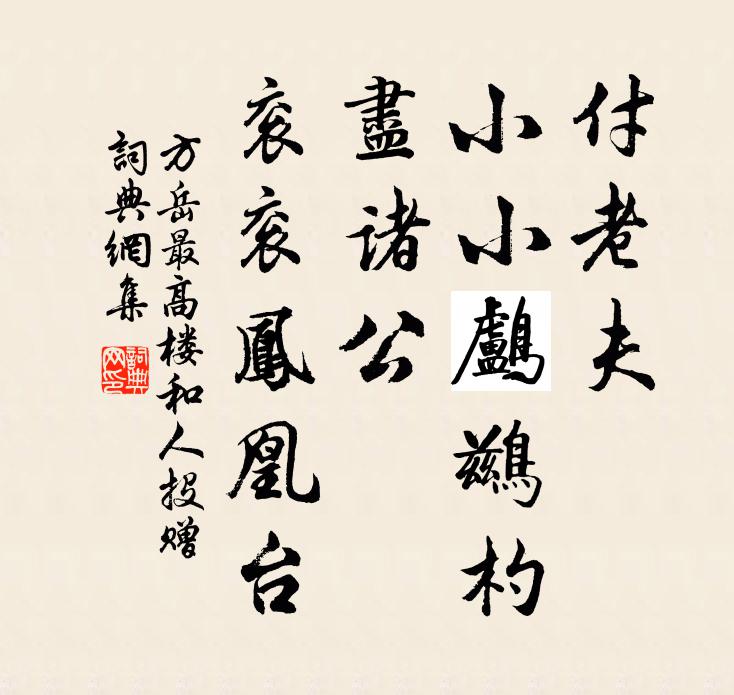 付老夫
小小鸕鷀杓
盡诸公
衮衮鳳凰台
方岳最高楼和人投赠
詞典網集
詞典网印